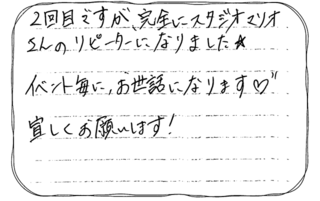 2回目ですが、完全にスタジオマリオ
さんのリピーターになりました★
イベント毎に、お世話になります♡"
宜しくお願いします!